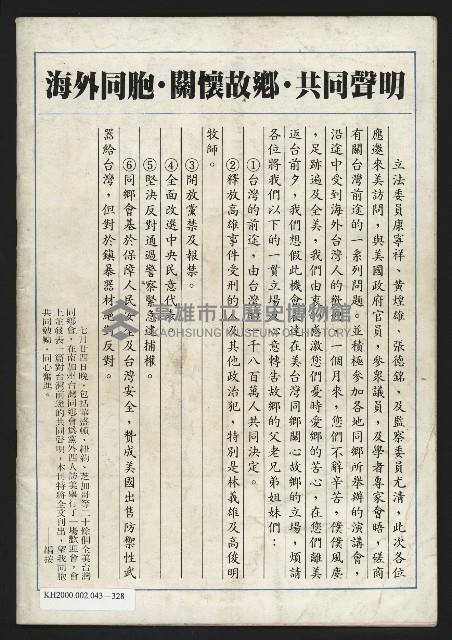 海外同胞・關懷故鄉・共同聲明
立法委員康寧祥、黃煌雄、張德銘，及監察委員尤清，此次各位
應邀來美訪問，與美國政府官員，參眾議員，及學者專家會晤，磋商
有關台灣前途的一系列問題。並積極參加各地同鄉所舉辦的演講會，
沿途中受到海外台灣人的歡　一個月來，您們不辭辛苦，僕僕風塵
，足跡遍及全美，我們由衷　感激您們愛時愛鄉的苦心，在您們離美
返台前夕，我們想假此機會　達在美台灣同鄉關心故鄉的立場，煩請
各位將我們以下的一貫立場　心意轉告故鄉的父老兄弟姐妹們：
①台灣的前途，由台灣　千八百萬人共同決定。
②釋放高雄事件受刑的　及其他政治犯，特別是林義雄及高俊明
牧師。
③開放黨禁及報禁。
④全面改選中央民意代
⑤堅決反對通過警察緊急逮捕權。
⑥同鄉會基於保障人民安全及台灣安全，贊成美國出售防禦性武
器給台灣，但對於鎮暴器材　反對。
七月廿四日晚，包括華盛頓、紐約、芝加哥等二十餘個全美台灣
同鄉會，在南加州台灣同鄉會為黨外四人訪美舉行了一場歡迎會，會
上並發表一篇對台灣前途的共同聲明，本刊特將全文刊出，望我同胞
共同勉勵，同心奮進。
編按
高雄市立歷史博物館
KAOHSIUNG MUSEUM OF HISTORY
KH2000.002.043—328